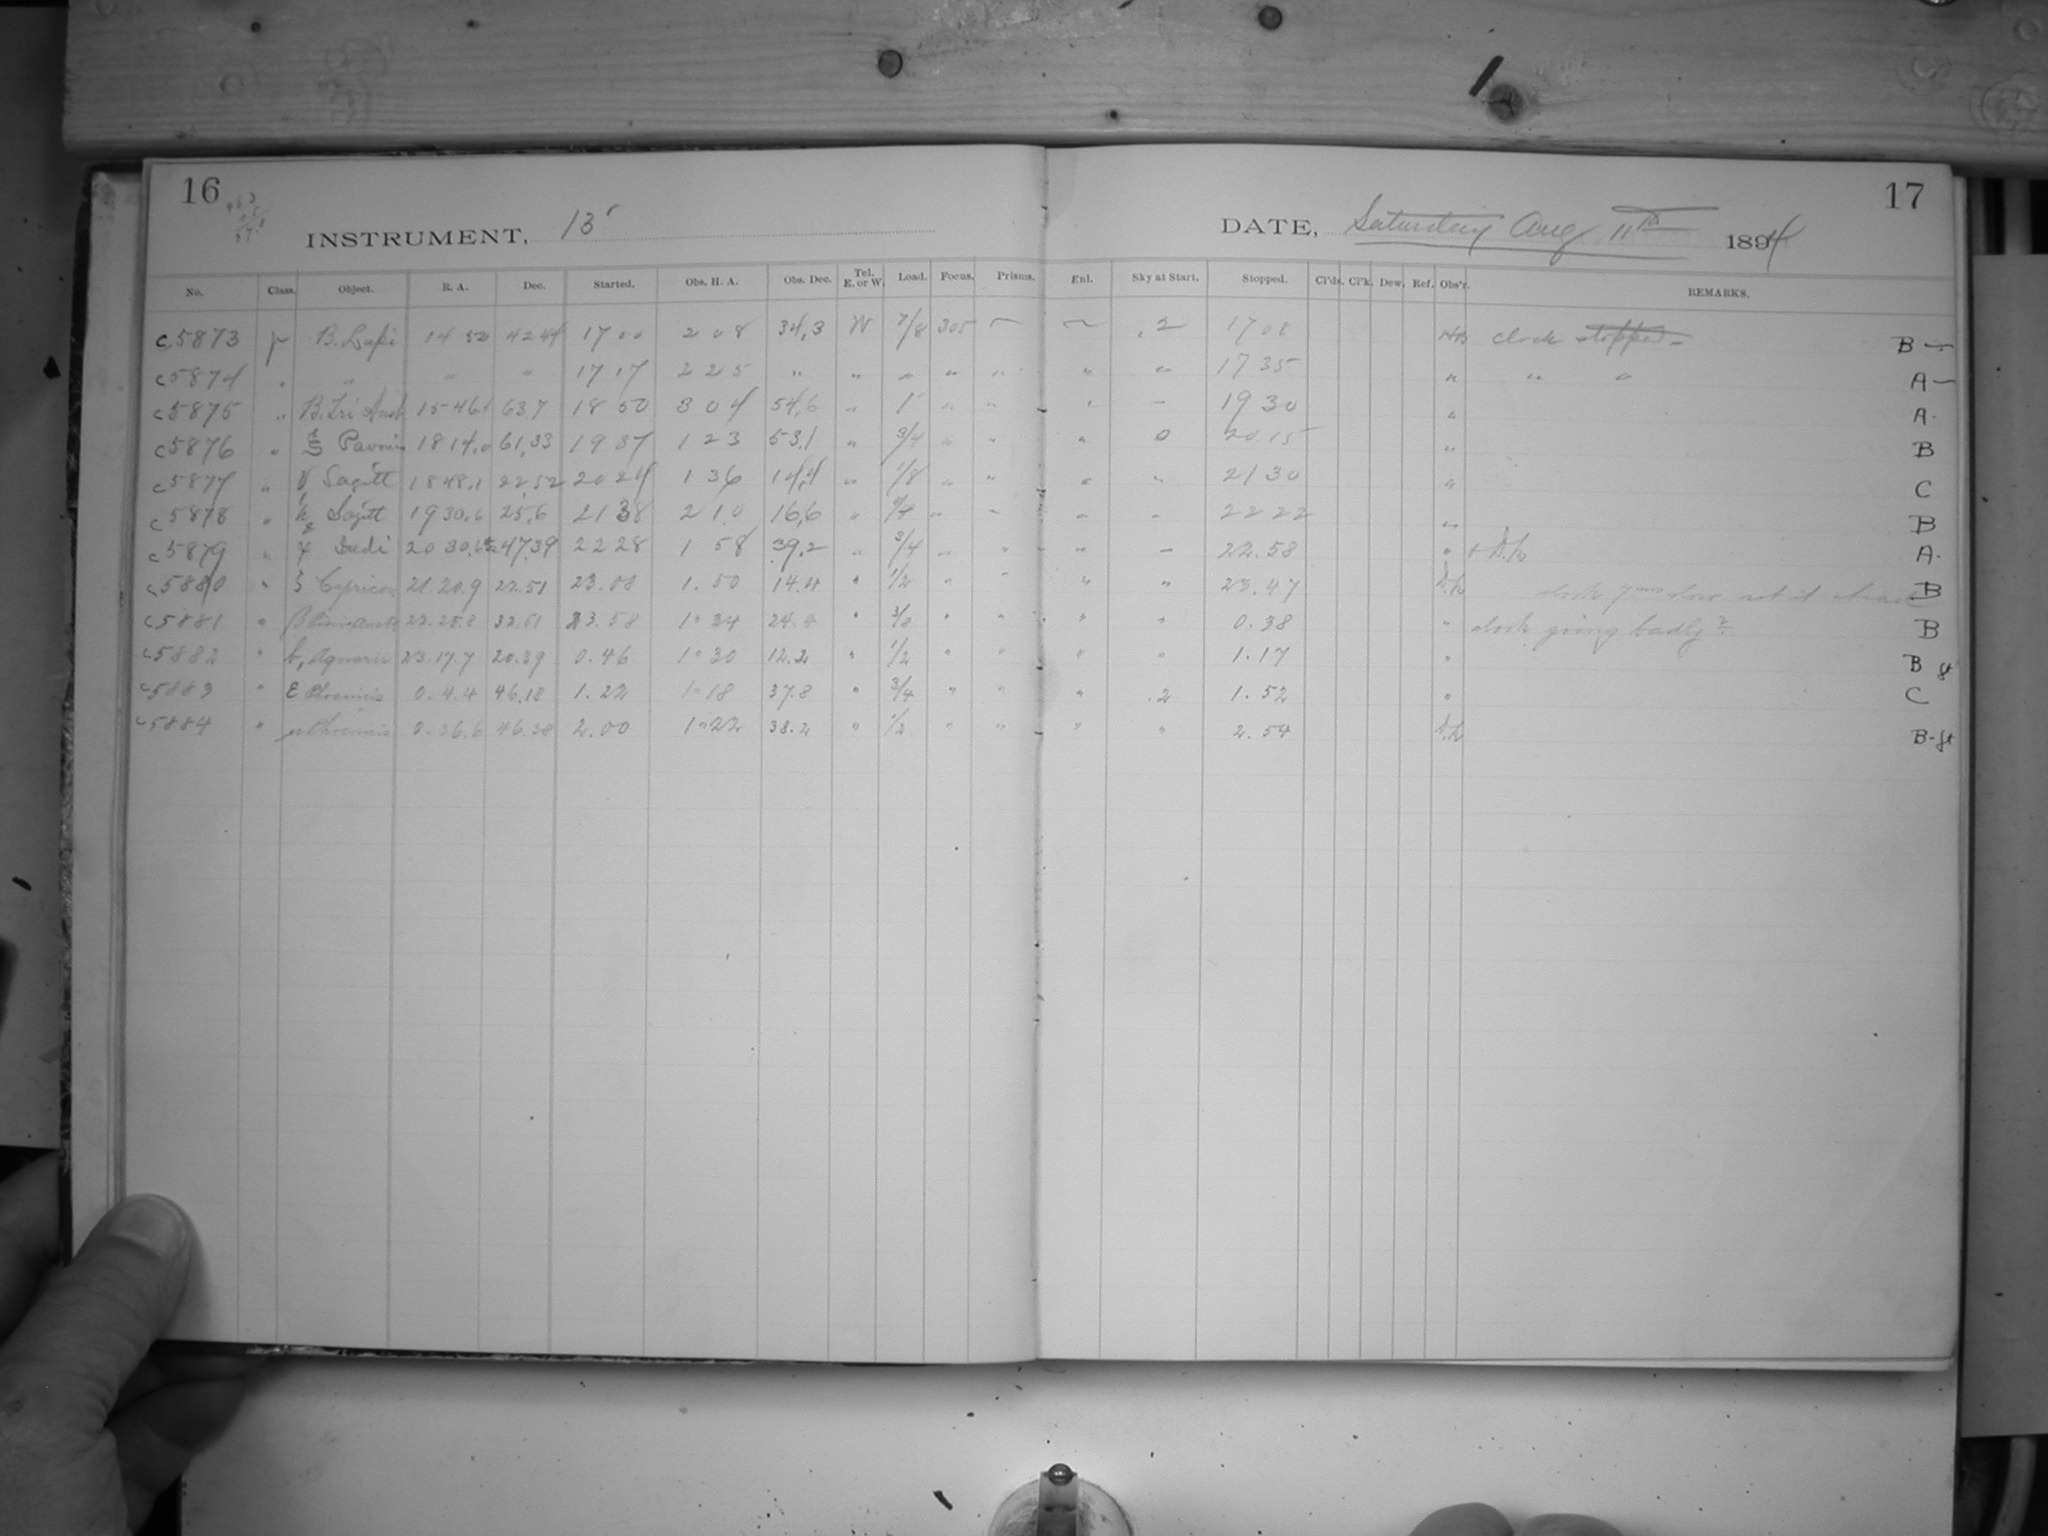 16
17
INSTRUMENT, 13
DATE, Saturday Aug 11th 1894
No. Class. Object. R. A. Dec. Started. Obs. H. A. Obs. Dec. Tel. E. or W. Load. Focus. Prisms. Enl. Sky at Start. Stopped. Cl'ds. Cl'k. Dew. Ref. Obs'r. REMARKS.
c5873 p B. Lupi 14 52 42 44 17 00 2 08 34,3 W 7/8 305 — — ,2 17 08 clock stopped B —
c5874 " " " " 17 17 2 25 " " " " " " " 17 35 " " " A —
c5875 " B. Tri Aust 15 46 63,7 18 50 3 04 54,6 " 1 " " " — 19 30 " A.
c5876 " ξ Pavonis 18 14,0 61,33 19 37 1 23 53,1 " 3/4 " " " 0 20.15 " B
c5877 " ν Sagitt 18 48,1 22,52 20 24 1 36 14,4 " 1/8 " " " " 21 30 " C
c5878 " h2 Sagitt 19 30,6 25,6 21 38 2 10 16,6 " " " " " 22 22 " B
c5879 " Indi 20 30,6 47,39 22 28 1 58 39,2 " 3/4 " " " — 22.58 " A.
c5880 " ζ Capricor 21.20.9 22.51 23.08 1.50 14.4 " 1/2 " " " " 23.47 B
c5881 " β 22.25.8 32.51 23.58 1 34 24.4 " " " " " 0.38 " clock going badly? B
c5882 " b, Aquarii 23.17.7 20.39 0.46 1 30 12.2 " 1/2 " " " " 1.17 " B
c5883 " ε Phoenicis 0.4.4 46.18 1.22 1 18 37.8 " 3/4 " " " .2 1.52 " C
c5884 " μ Phoenicis 0.36.6 46.38 2.00 1 22 38.2 " 1/2 " " " " 2.54 B